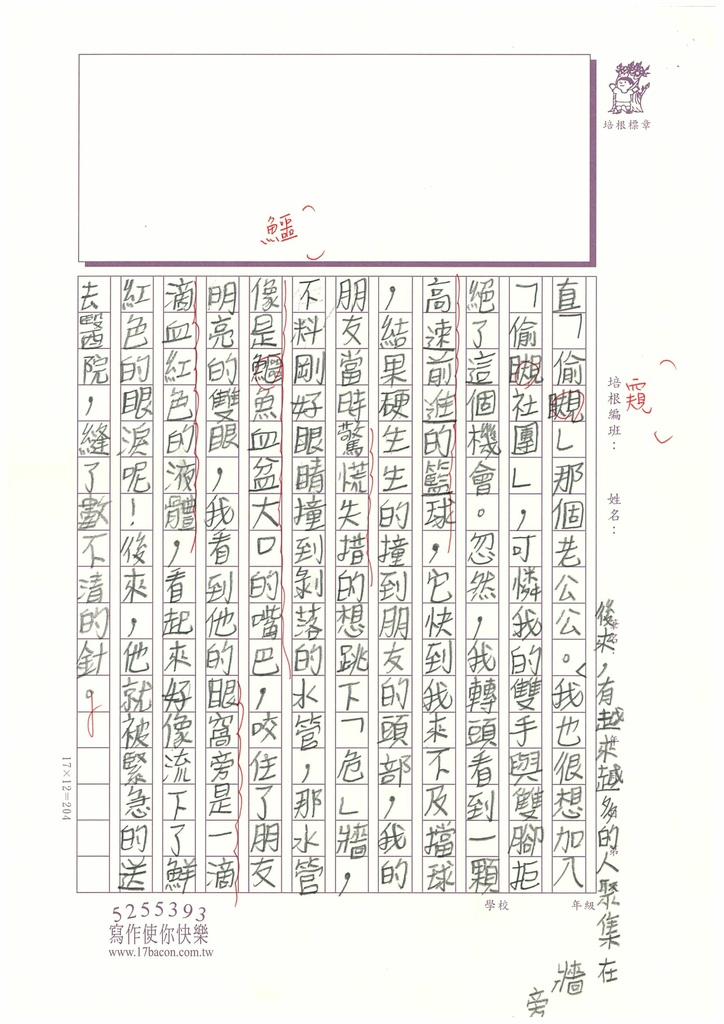 培根標章
鱷
覭
培根編班：
姓名：
後來，有越來越多的人聚集在牆旁
直「偷覭」那個老公公。我也很想加入
「偷覭社團」，可憐我的雙手與雙腳拒
絕了這個機會。忽然，我轉頭看到一顆
高速前進的籃球，它快到我來不及擋球
，結果硬生生的撞到朋友的頭部，我的
朋友當時驚慌失措的想跳下「危」牆，
不料剛好眼睛撞到剝落的水管，那水管
像是鱷魚血盆大口的嘴巴，咬住了朋友
明亮的雙眼，我看到他的眼窩旁是一滴
滴血紅色的液體，看起來好像流下了鮮
紅色的眼淚呢！後來，他就被緊急的送
去醫院，縫了數不清的針。
17×12=204
學校
年級
5255393
寫作使你快樂
www.17bacon.com.tw